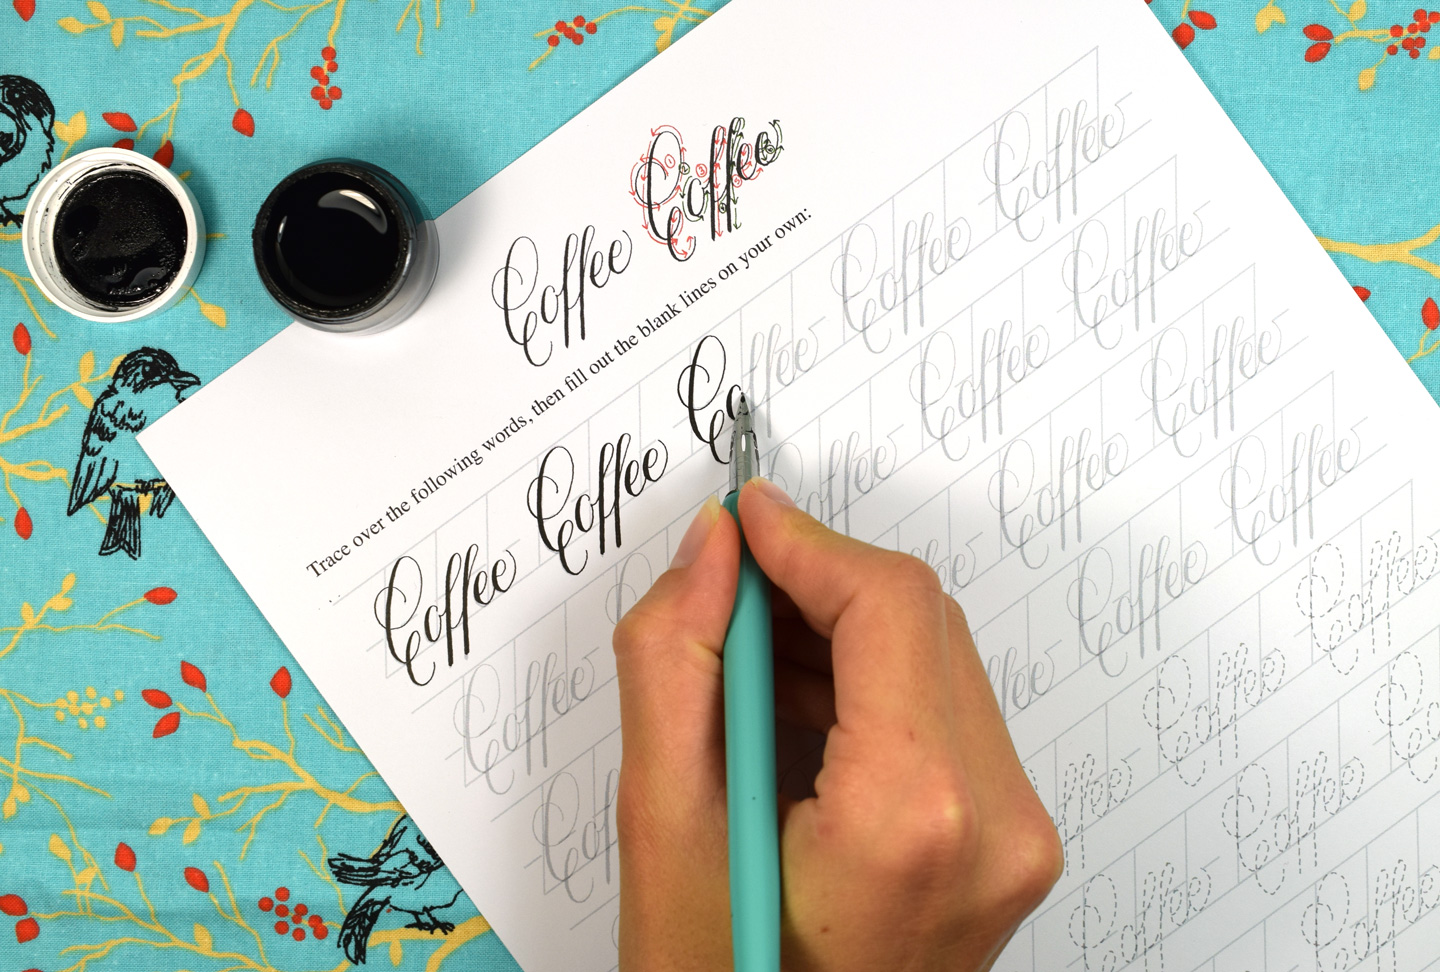 Coffee Coffee
Trace over the following words, then fill out the blank lines on your own:
Coffee Coffee Coffee Coffee Coffee
Coffee Coffee Coffee Coffee
Cof ffee Coffee Coffee
ffee Coffee Coffee
ffee Coffee Coffee
Coffee Coffee Co
Coffee